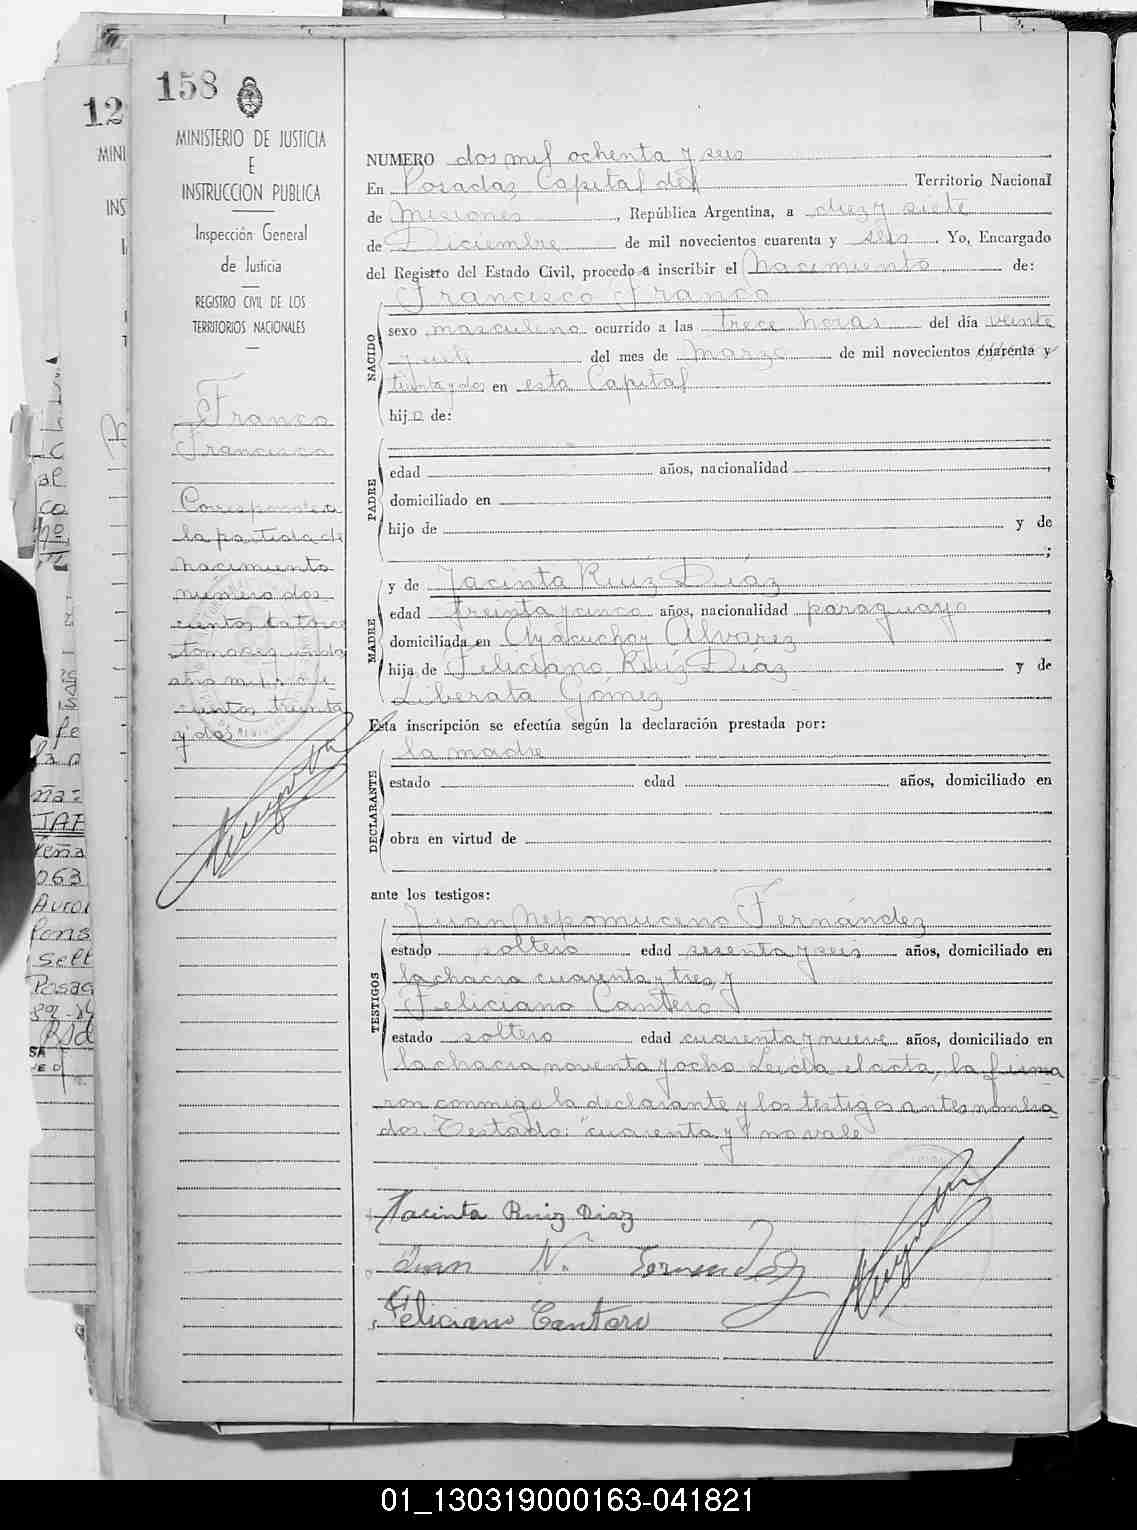 158
MINISTERIO DE JUSTICIA
E
INSTRUCCION PUBLICA
Inspección General
de Justicia
REGISTRO CIVIL DE LOS
TERRITORIOS NACIONALES
Franco
Francisco
Corresponde a
la partida de
nacimiento
número dos
cientos catorce
tomo segundo
año mil nove
cientos treinta
y dos
NUMERO dos mil ochenta y seis
En Posadas Capital del Territorio Nacional
de Misiones, República Argentina, a diez y siete
de Diciembre de mil novecientos cuarenta y seis. Yo, Encargado
del Registro del Estado Civil, procedo a inscribir el nacimiento de:
NACIDO
Francisco Franco
sexo masculino ocurrido a las trece horas del día veinte
del mes de Marzo de mil novecientos cuarenta y
treinta y dos en esta Capital
hijo de:
PADRE
edad años, nacionalidad
domiciliado en
hijo de y de
;
MADRE
y de Jacinta Ruiz Diaz
edad treinta y cinco años, nacionalidad paraguaya
domiciliada en Ayacucho y Alvarez
hija de Feliciano Ruiz Diaz y de
Liberata Gomez
Esta inscripción se efectúa según la declaración prestada por:
DECLARANTE
la madre
estado edad años, domiciliado en
obra en virtud de
ante los testigos:
TESTIGOS
Juan Nepomuceno Fernández
estado soltero edad sesenta y seis años, domiciliado en
la chacra cuarenta y tres, y
Feliciano Cantero
estado soltero edad cuarenta y nueve años, domiciliado en
la chacra noventa y ocho Leída el acta, la firma
ron conmigo la declarante y los testigos antes nombra
dos. Testado: "cuarenta y" no vale
Jacinta Ruiz Diaz
Juan N. Fernandez
Feliciano Cantero
12
MINI
INS
JAF
063
Posad
01_130319000163-041821